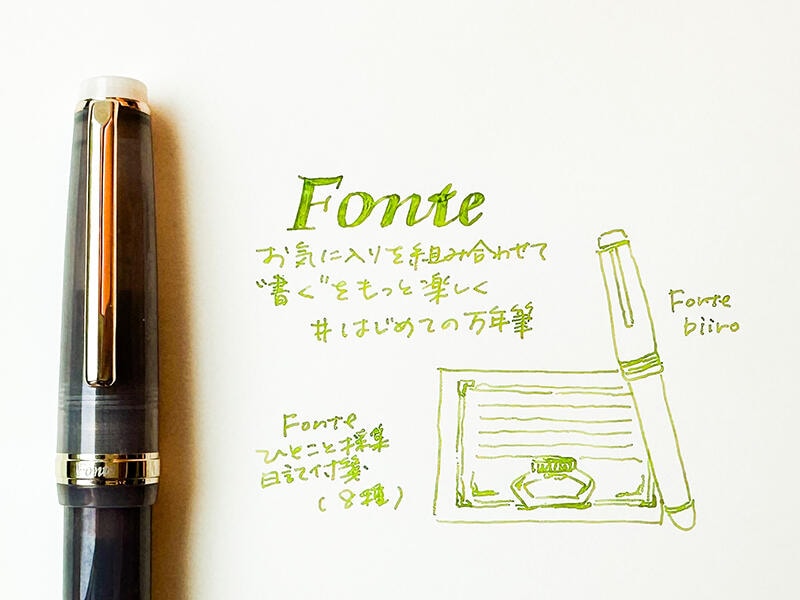 Fonte
お気に入りを組み合わせて
"書く"をもっと楽しく
#はじめての万年筆
Fonte
biiro
Fonte
ひとこと採集
日記付箋
(8種)
Fono